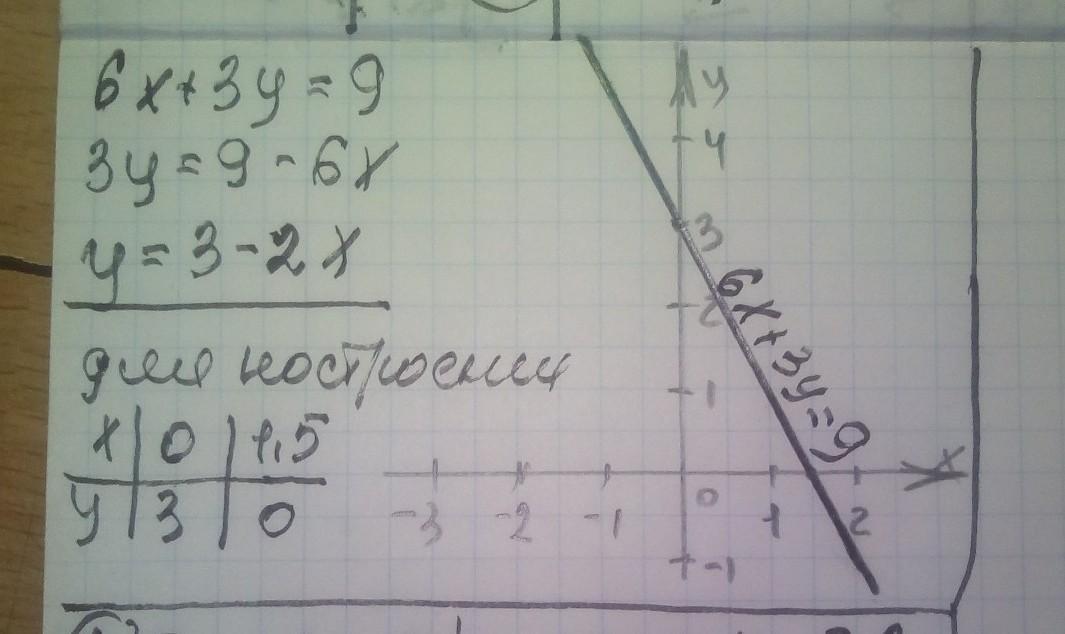 6x+3y=9
3y=9-6x
y=3-2x
для построения
x | 0 | 1,5
y | 3 | 0
y
4
3
2
1
6x+3y=9
x
-3 -2 -1 0 1 2
-1